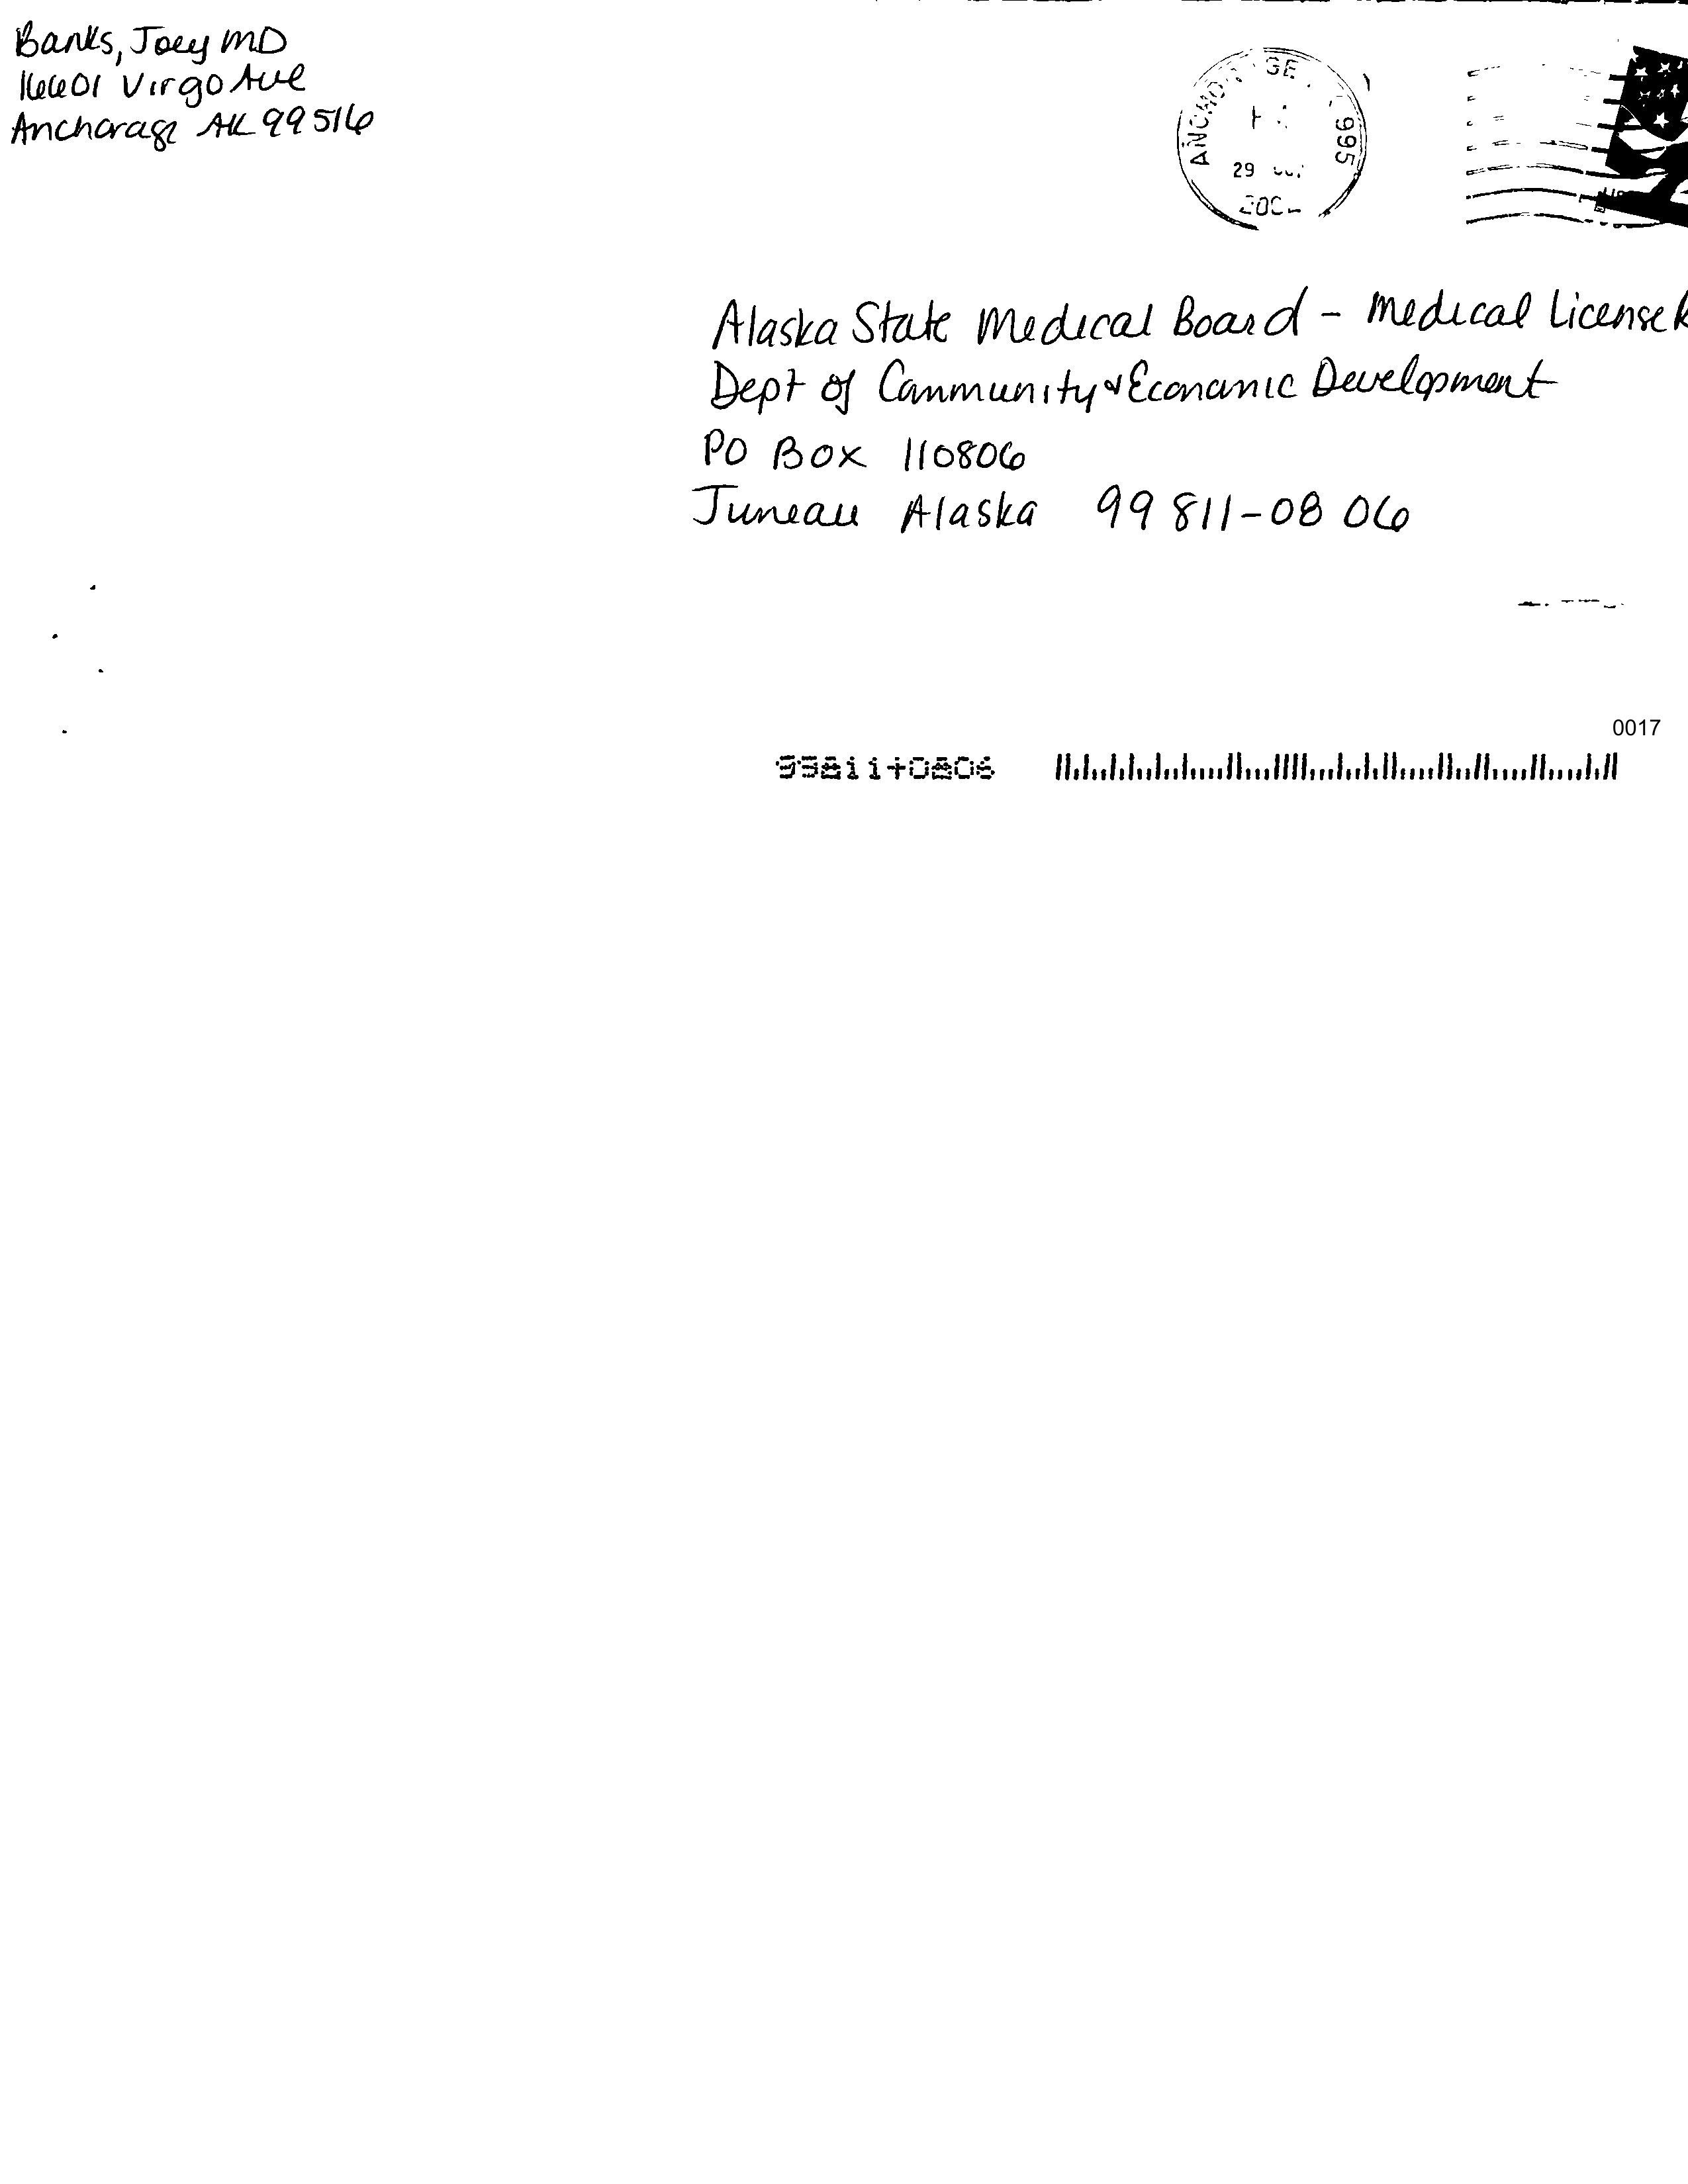 Banks, Joey MD
16601 Virgo Ave
Anchorage AK 99516
29
Alaska State Medical Board - Medical License
Dept of Community & Economic Development
PO Box 110806
Juneau Alaska 99811-0806
0017
99811+0806